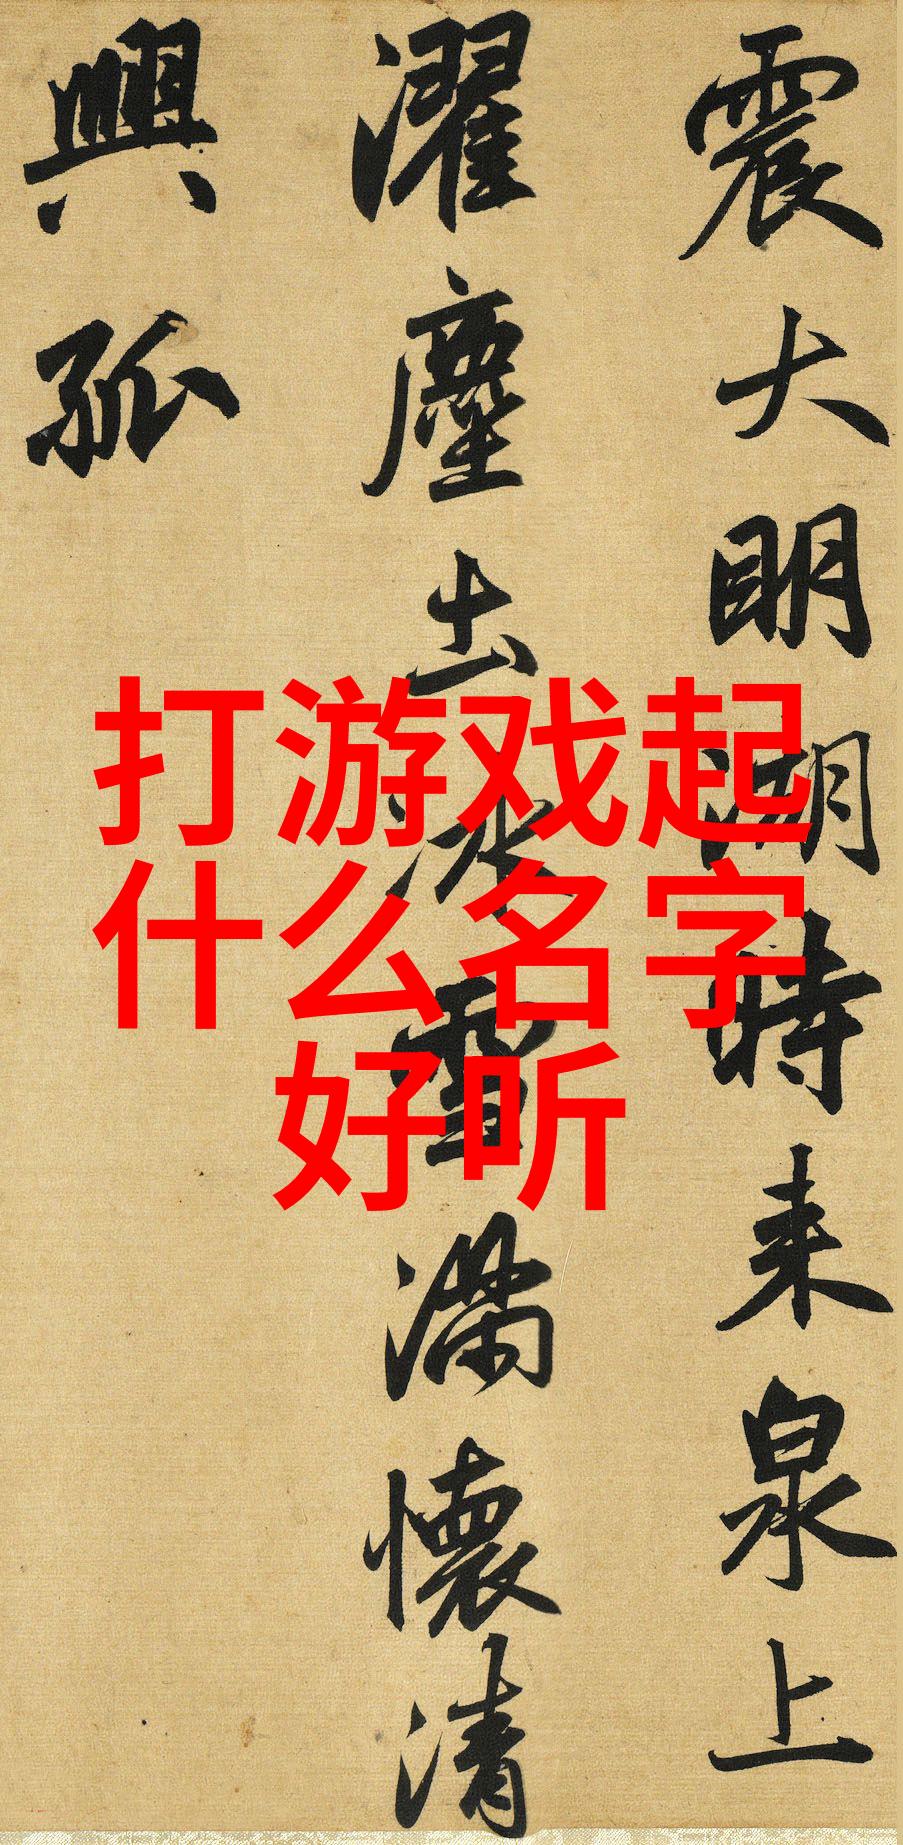 震大明湖時来泉上
濯塵土冰雪滿懷清
興孤
打游戏起
什么名字
好听